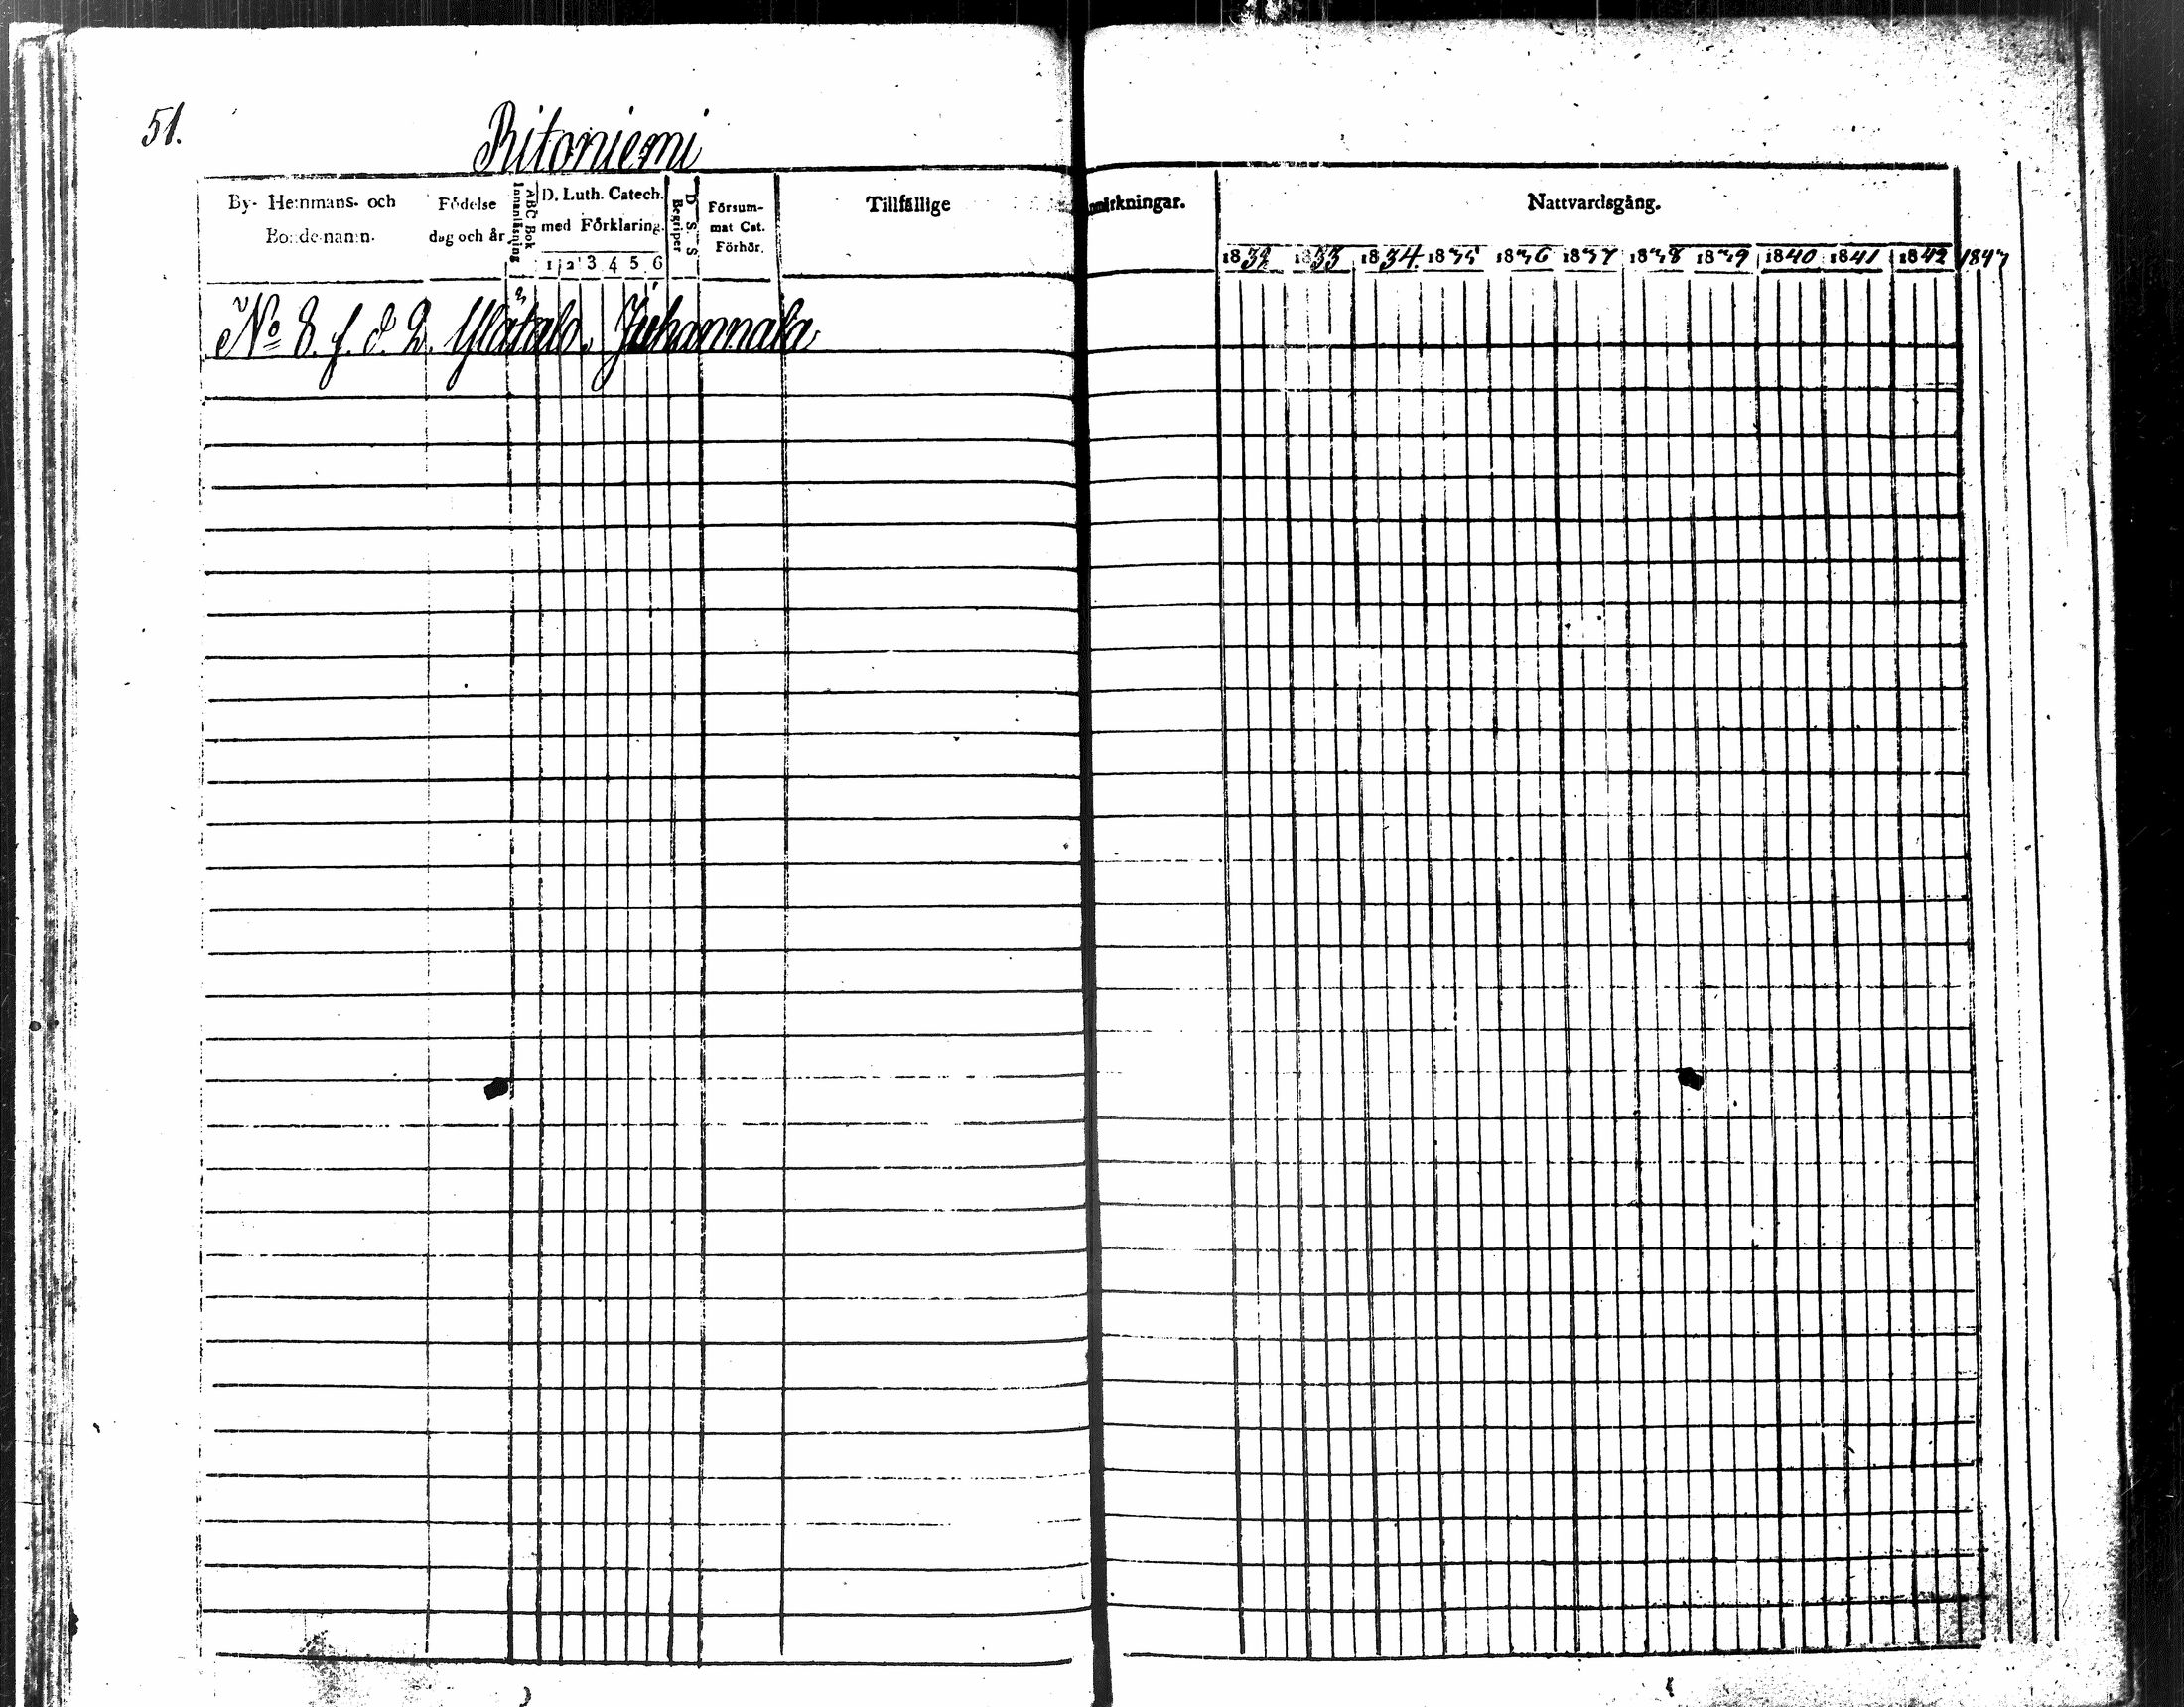 51.
Ritoniemi
By- Hemmans- och Bondenamn.
Födelse dag och år
ABC Bok Innanläsning
D. Luth. Catech. med Förklaring.
1 2 3 4 5 6
D. S. S Begriper
Försum-
mat Cat.
Förhör.
Tillfällige
Anmärkningar.
Nattvardsgång.
1832 1833 1834 1835 1836 1837 1838 1839 1840 1841 1842 1843
No 8. f. d. 2. Ylätalo, Juhannala